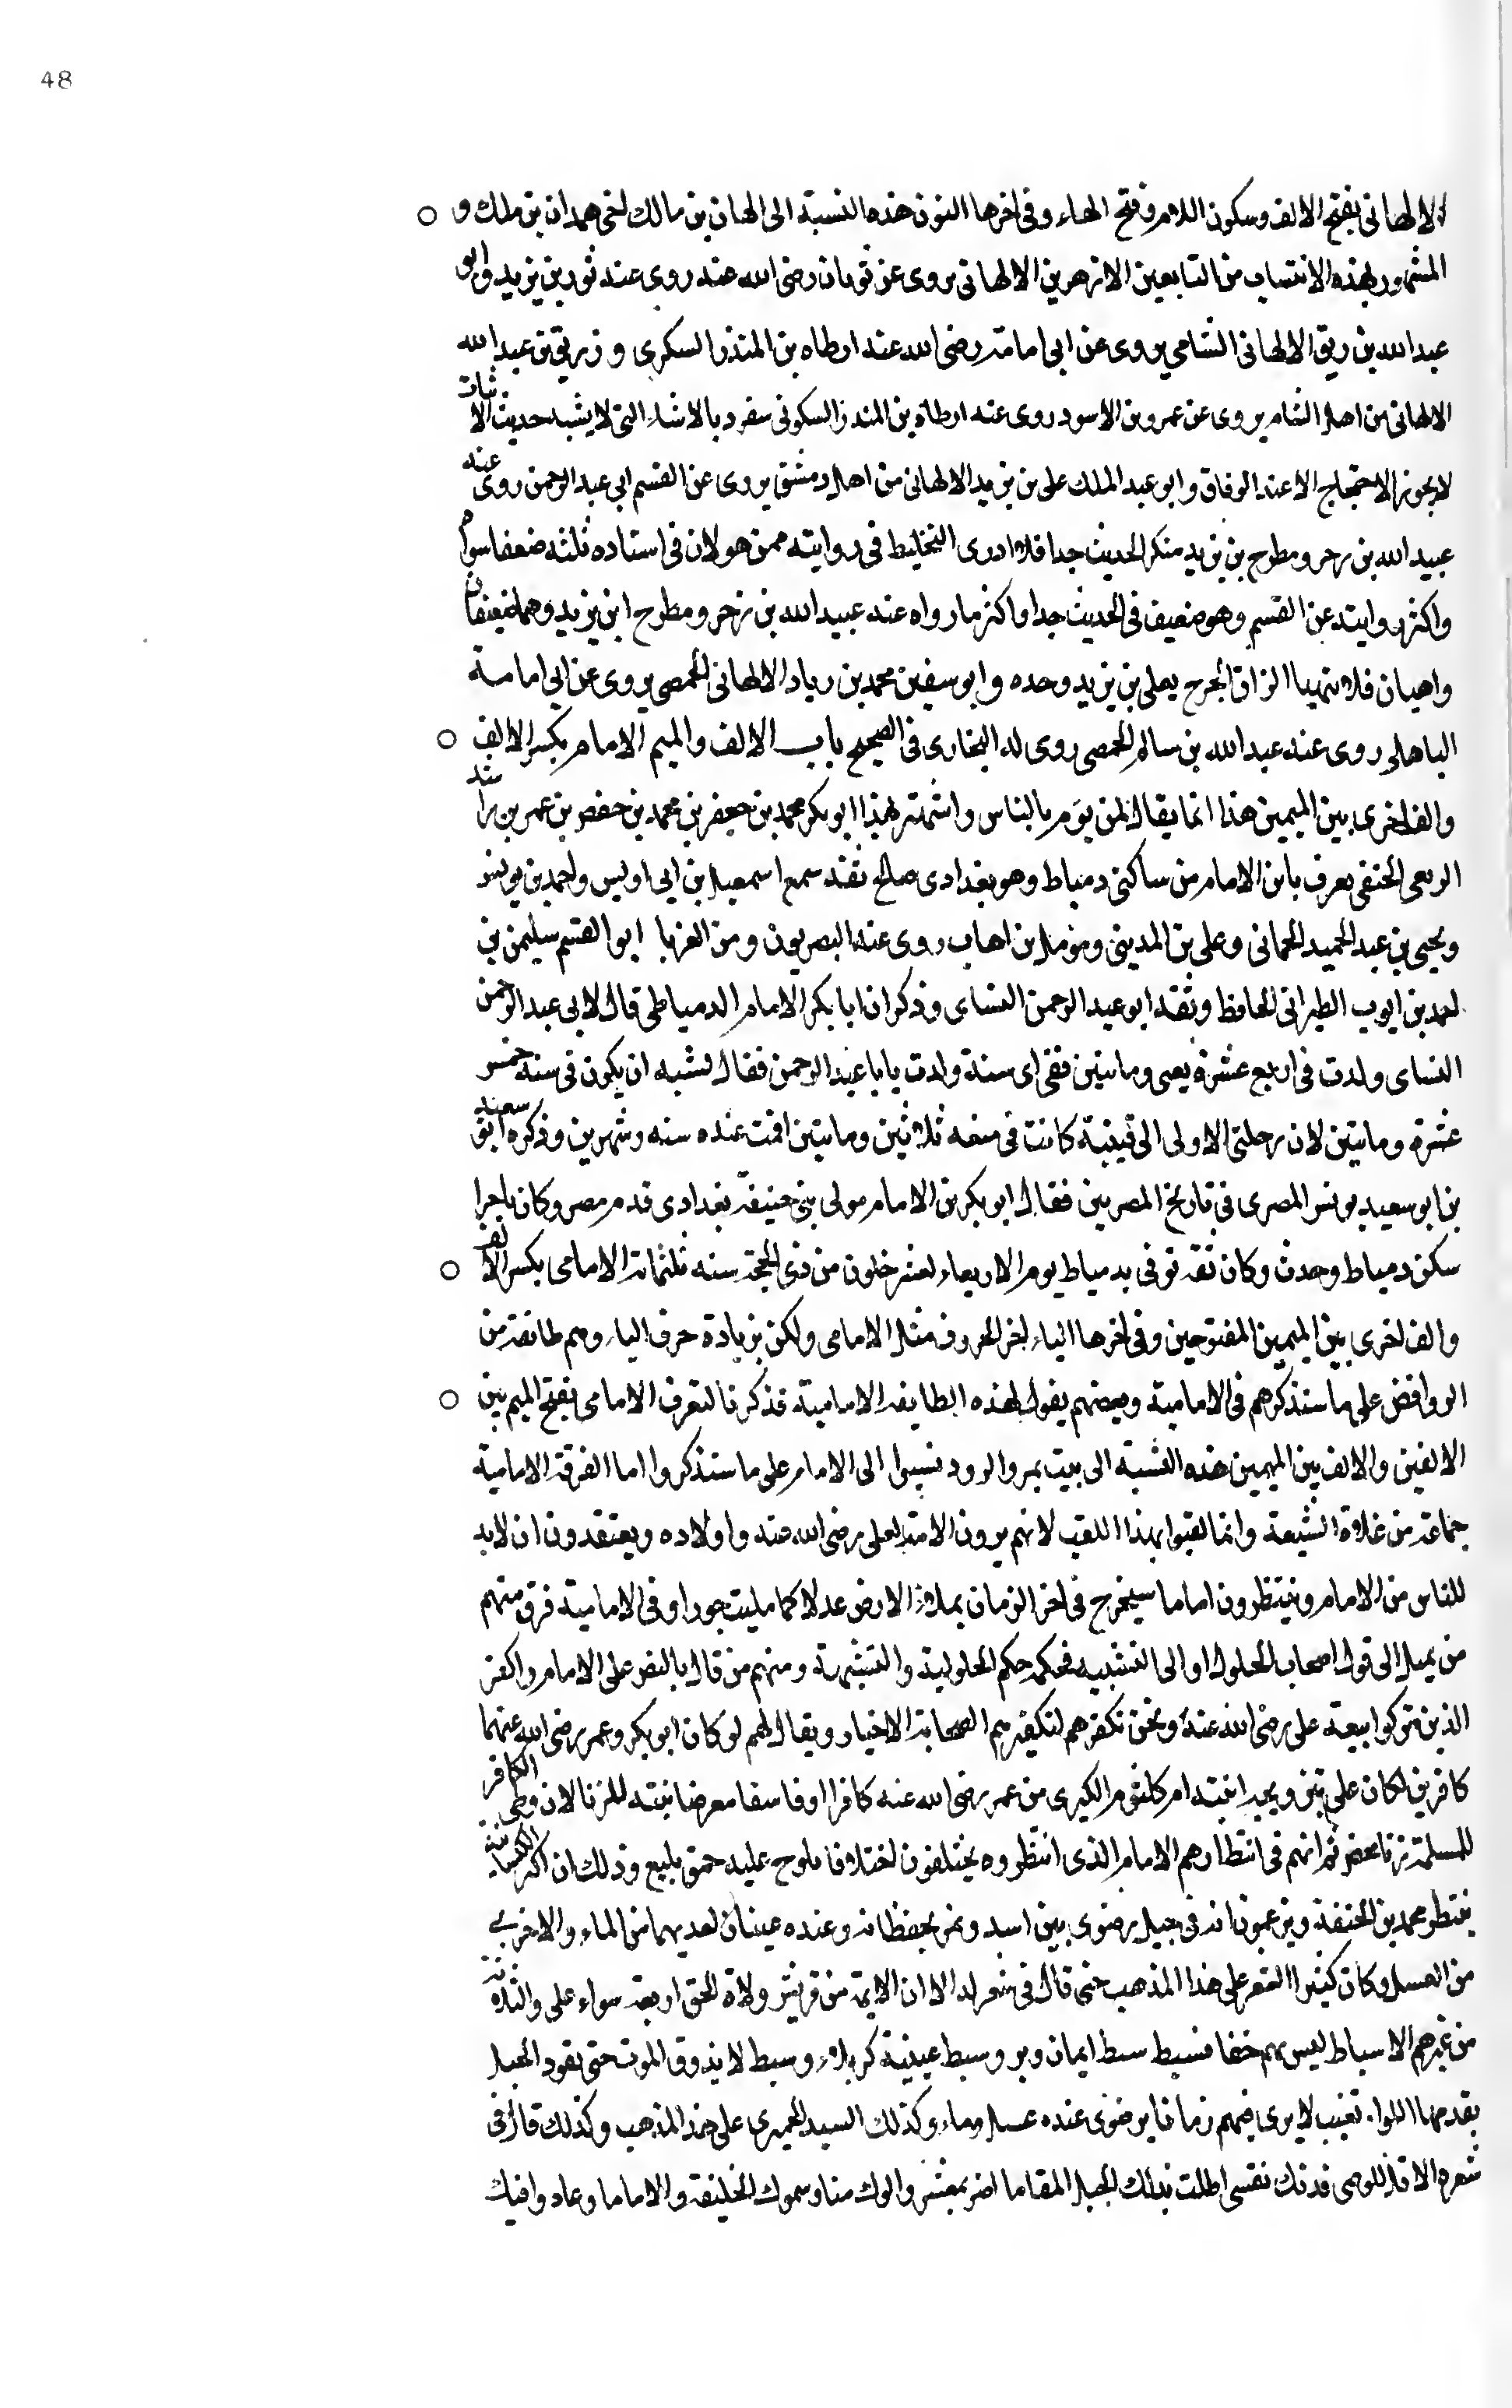 48
الالهانى بفتح الالف وسكون اللام وفتح الهاء وفى اخرها النون هذه النسبة الى الهان بن مالك اخى همدان بن ملك و
المشهور بهذه الانتساب من التابعين الازهر بن الالهانى يروى عن ثوبان رضى الله عنه روى عنه ثور بن يزيد وابو
عبد الله بن ريق الالهانى الشامى يروى عن ابى امامة رضى الله عنه ارطاه بن المنذر السكرى و زريق بن عبد الله
الالهانى من اهل الشام يروى عن عمرو بن الاسود روى عنه ارطاة بن المنذر السكونى سفرد بالاشاء التى لا يشبه حديث الاثبات
لا يجوز الاحتجاج الا عند الوفاق وابو عبد الملك على بن يزيد الالهانى من اهل دمشق يروى عن القسم ابى عبد الرحمن روى عنه
عبيد الله بن زحر ومطرح بن يزيد منكر الحديث جدا فلا ادرى التخليط فى روايته ممن هو لان فى اسناده ثلثه ضعفا سواهم
واكثر روايته عن القسم وهو ضعيف فى الحديث جدا واكثر ما رواه عنه عبيد الله بن زحر ومطرح ابن يزيد وهما ضعيفان
واهيان فلا يتهيا الزاق الجرح بعلى بن يزيد وحده وابو سفين محمد بن زياد الالهانى الحمصى يروى عن ابى امامة
الباهلى روى عنه عبد الله بن سالم الحمصى روى له البخارى فى الصحيح باب الالف والميم الامام بكسر الالف
والف اخرى بين الميمين هذا انما يقال لمن يؤم بالناس واشتهر بهذا ابو بكر محمد بن جعفر بن محمد بن حفص بن عمر بن راشد
الربعى الحنفى يعرف بابن الامام من ساكنى دمياط وهو بغدادى صالح ثقة سمع اسمعيل بن ابى اويس واحمد بن يونس
ويحيى بن عبد الحميد الحمانى وعلى بن المدينى ومؤمل بن اهاب روى عنه البصريون ومن الغربا ابو القسم سليمن بن
احمد بن ايوب الطبرانى الحافظ وثقه ابو عبد الرحمن النساى وذكر ان ابا بكر الامام الدمياطى قال لابى عبد الرحمن
النساى ولدت فى اربع عشرة يعنى وماتين ففى اى سنة ولدت يا با عبد الرحمن فقال لشبه ان يكون فى سنه خمس
عشرة وماتين لان رحلتى الاولى الى قتيبة كانت فى سنه ثلاثين وماتين اقمت عنده سنه وشهرين وذكره ابو سعيد
بن ابو سعيد يونس المصرى فى تاريخ المصريين فقال ابو بكر بن الامام مولى بنى حنيفة بغدادى قدم مصر وكان تاجرا
سكن دمياط وحدث وكان ثقة توفى بدمياط يوم الاربعاء لعشر خلون من ذى الحجة سنه ثلثماتة الامامى بكسر الالف
والف اخرى بين الميمين المفتوحين وفى اخرها الياء اخر الحروف مثل الامامى ولكن بزيادة حرف الياء وهم طائفة من
الروافض على ما سنذكرهم فى الامامية وبعضهم يقول لهذه الطايفه الامامية فذكرنا لتعرف الامامى بفتح الميم بين
الالفين والالف بين الميمين هذه النسبة الى بيت بمرو الرود نسبوا الى الامام على ما سنذكروا اما الفرقه الامامية
جماعة من غلاة الشيعة وانما لقبوا بهذا اللقب لانهم يرون الامامة لعلى رضى الله عنه واولاده ويعتقدون ان لا بد
للناس من الامام وينتظرون اماما سيخرج فى اخر الزمان يملاء الارض عدلا كما مليت جورا وفى الامامية فرق منهم
من يميل الى قول اصحاب الحلول او الى التشبيه فحكمه حكم الحلولية والتشبهية ومنهم من قال بالنص على الامام واكفر
الذين تركوا بيعة على رضى الله عنه ونحن نكفرهم لتكفيرهم الصحابة الاخيار ويقال لهم لو كان ابو بكر وعمر رضى الله عنهما
كافرين لكان على بتزويجه ابنته ام كلثوم الكبرى من عمر رضى الله عنه كافرا او فاسقا معرضا بنته للزنا لان وطى الكافر
للمسلمة زنا محض ثم انهم فى انتظارهم الامام الذى انتظروه يختلفون اختلافا يلوح عليه حمق بليغ وذلك ان اكثر الكيسانية
ينتظر محمد بن الحنفية ويزعمون انه فى جبل رضوى بين اسد ونمر يحفظانه وعنده عينان احديهما من الماء والاخرى
من العسل وكان كثير الشعر على هذا المذهب حتى قال فى شعر له الا ان الايمة من قريش ولاة الحق اربعة سواء على والثلاثة
من غيرهم الاسباط ليس بهم خفا فسبط سبط ايمان وبر وسبط غيبته كربلاء وسبط لا يذوق الموت حتى يقود الخيل
يقدمها اللواء تغيب لا يرى فيهم زمانا برضوى عنده عسل وماء وكذلك السيد الحميرى على هذا المذهب وكذلك قال فى
شعره الا قل للوصى فدتك نفسى اطلت بذلك الجبل المقاما اضر بمعشر والوك منا وسموك الخليفة والاماما وعاد وافيك